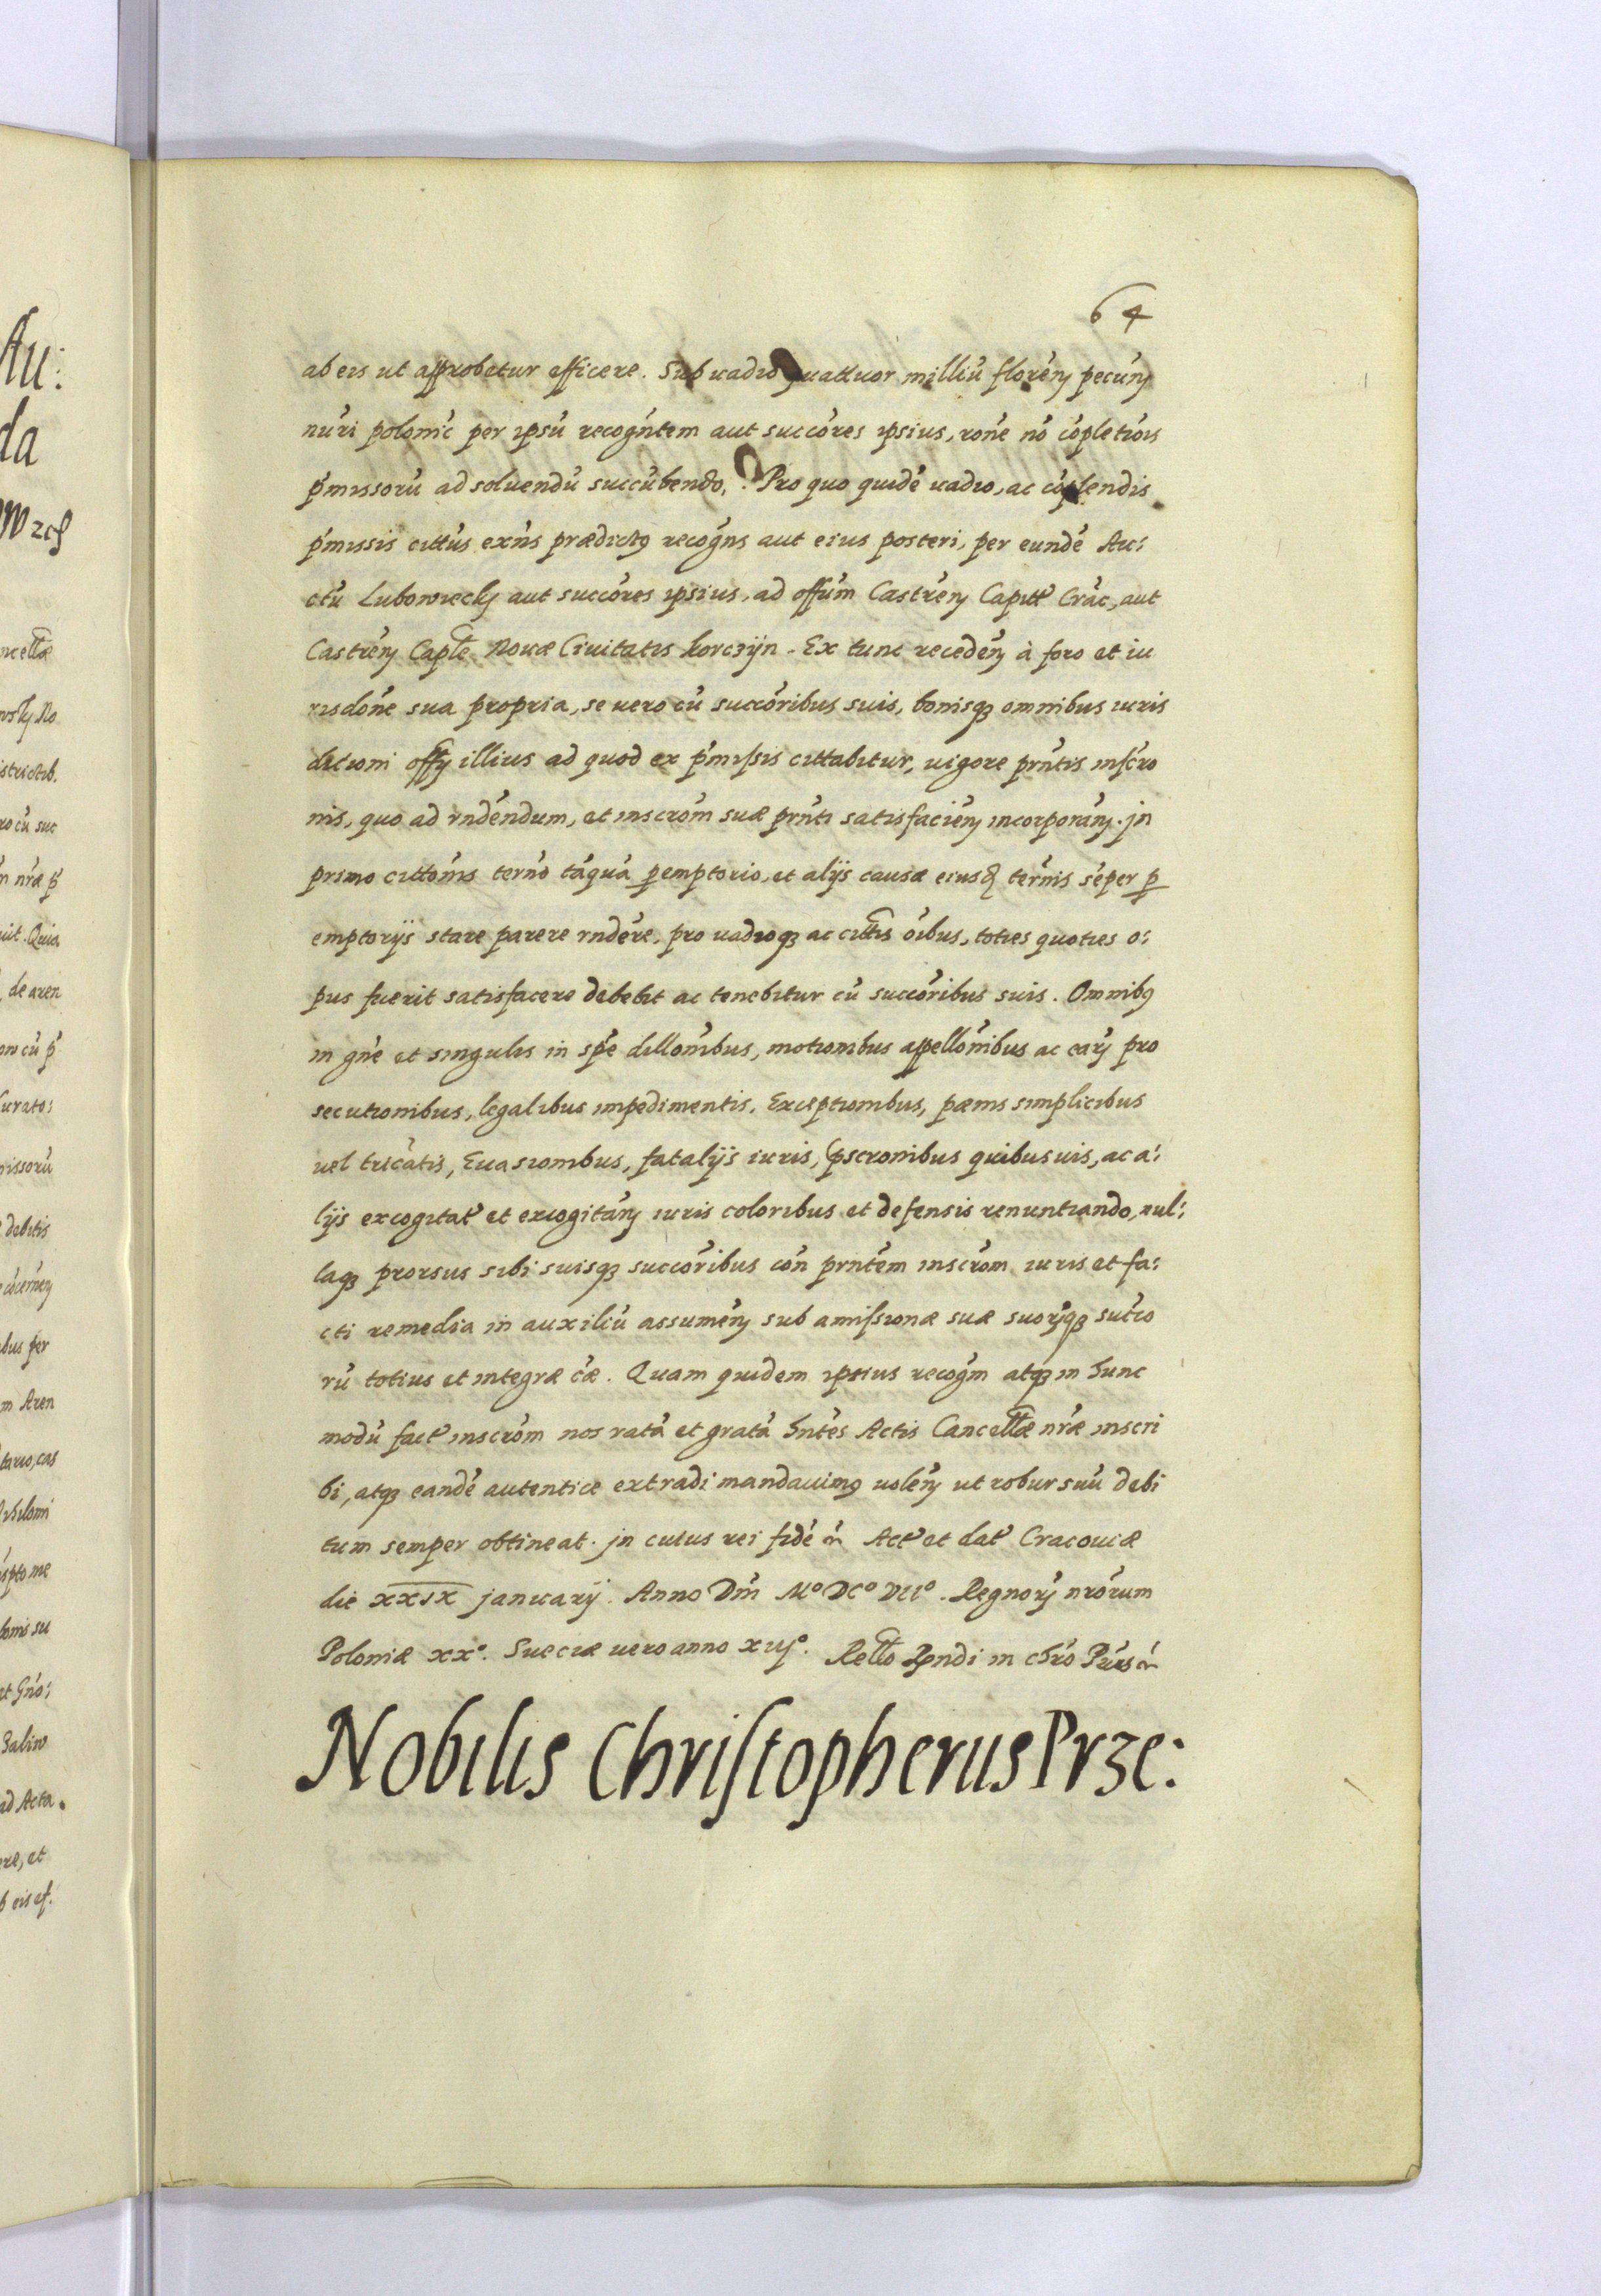 64
ab eis ut approbetur efficere. Sub uadio quattuor milliū floreñ pecuñ
nūri poloniċ per ipsū recogńtem aut succōres ipsius, rōne nō cōpletiōis
ṕmissorū ad soluendū succūbendo. Pro quo quidē uadio, ac cōplendis
ṕmissis cittūs exńs prædictus recogńs aut eius posteri, per eundē Au:
ctū Lubowiecky aut succōres ipsius, ad offūm Castreñ Capitt Crac, aut
Castreñ Caple Nouæ Ciuitatis Korczijn. Ex tunc recedeñ à foro et iu
risdōne sua propria, se uero cū succōribus suis, bonisq̃ omnibus iuris
dictioni offy illius ad quod ex ṕmissis cittabitur, uigore prńtis inscro
nis, quo ad rndēndum, et inscrōm suæ prńti satisfacień incorporań. jn
primo cittōnis terńo tāquā p̱emptorio, et alijs causæ eiusđ terńis sēper p̱
emptorijs stare parere rndēre, pro uadioq̃ ac cittis ōibus, toties quoties o:
pus fuerit satisfacere debebit ac tenebitur cū succōribus suis. Omnibꝰ
in gńe et singulis in spē dillōnibus, motionibus appellōnibus ac earꝝ pro
secutionibus, legalibus impedimentis, Exceptionibus, pæenis simplicibus
uel tricātis, Euasionibus, fatalijs iuris, pscronibus quibusuis, ac a:
lijs excogitat et excogitań iuris coloribus et defensis renuntiando, nul:
laq̃ prorsus sibi suisq̃ succōribus cōn prntēm inscrōm iuris et fa:
cti remedia in auxiliū assumeñ sub amissionæ suæ suorꝝq̃ succo
rū totius et integræ cæ. Quam quidem ipsius recogm̄ atq̃ in hunc
modū fact inscrōm nos ratā et gratā hńtes Actis Cancellæ nræ inscri
bi, atq̃ eandē autentice extradi mandauimꝰ uoleñ ut robur suū debi
tum semper obtineat. jn cuius rei fidē &c Act et dat Cracouiæ
die XXIX januarij. Anno Dńi Mº DCº VIIº. Regnorꝝ nrōrum
Poloniæ XXº. Sueciæ uero anno XIIIº. Rello Rndi in chrō Prīs &c
Nobilis Christopherus Prze: